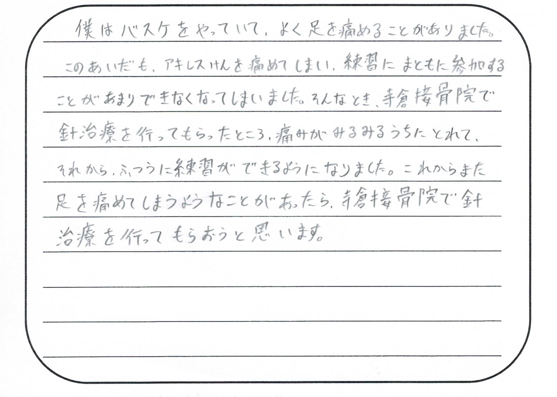 僕はバスケをやっていて、よく足を痛めることがありました。
このあいだも、アキレスけんを痛めてしまい、練習にまともに参加する
ことがあまりできなくなってしまいました。そんなとき、寺倉接骨院で
針治療を行ってもらったところ、痛みがみるみるうちにとれて、
それから、ふつうに練習ができるようになりました。これからまた
足を痛めてしまうようなことがあったら、寺倉接骨院で針
治療を行ってもらおうと思います。